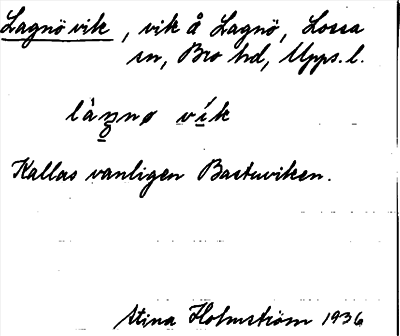 Lagnö vik, vik å Lagnö, Lossa
sn, Bro hd, Upps. l.
Kallas vanligen Bastuviken.
Stina Holmström 1936